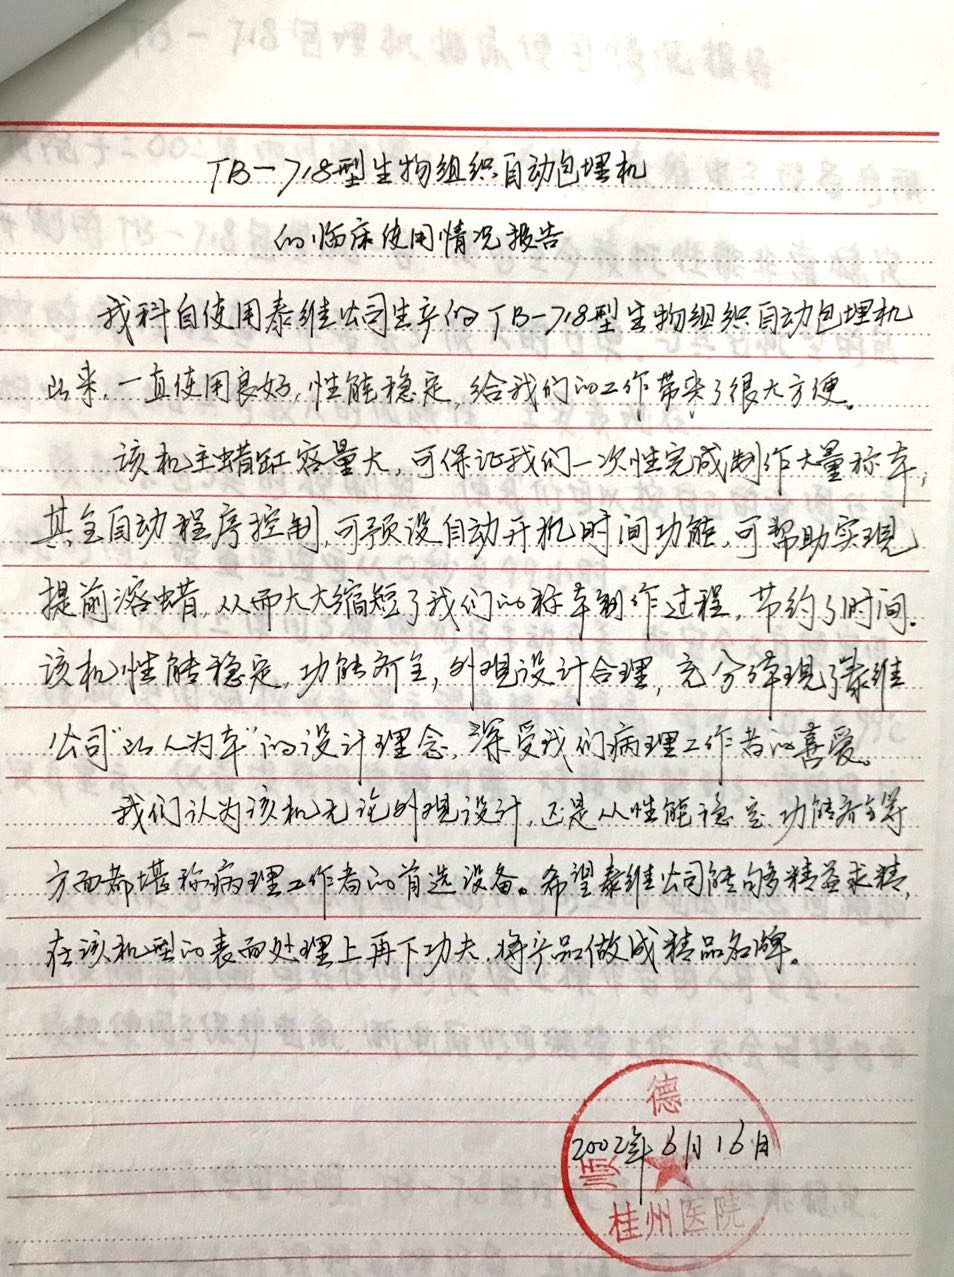 TB-718型生物组织自动包埋机
的临床使用情况报告
我科自使用泰维公司生产的TB-718型生物组织自动包埋机
以来,一直使用良好,性能稳定,给我们的工作带来了很大方便。
该机主蜡缸容量大,可保证我们一次性完成制作大量标本,
其全自动程序控制,可预设自动开机时间功能,可帮助实现
提前溶蜡,从而大大缩短了我们的标本制作过程,节约了时间.
该机性能稳定,功能齐全,外观设计合理,充分体现了泰维
公司"以人为本"的设计理念,深受我们病理工作者的喜爱。
我们认为该机无论外观设计,还是从性能稳定,功能齐全等
方面都堪称病理工作者的首选设备。希望泰维公司能够精益求精,
在该机型的表面处理上再下功夫,将产品做成精品名牌。
2002年6月16日
顺德
桂州医院